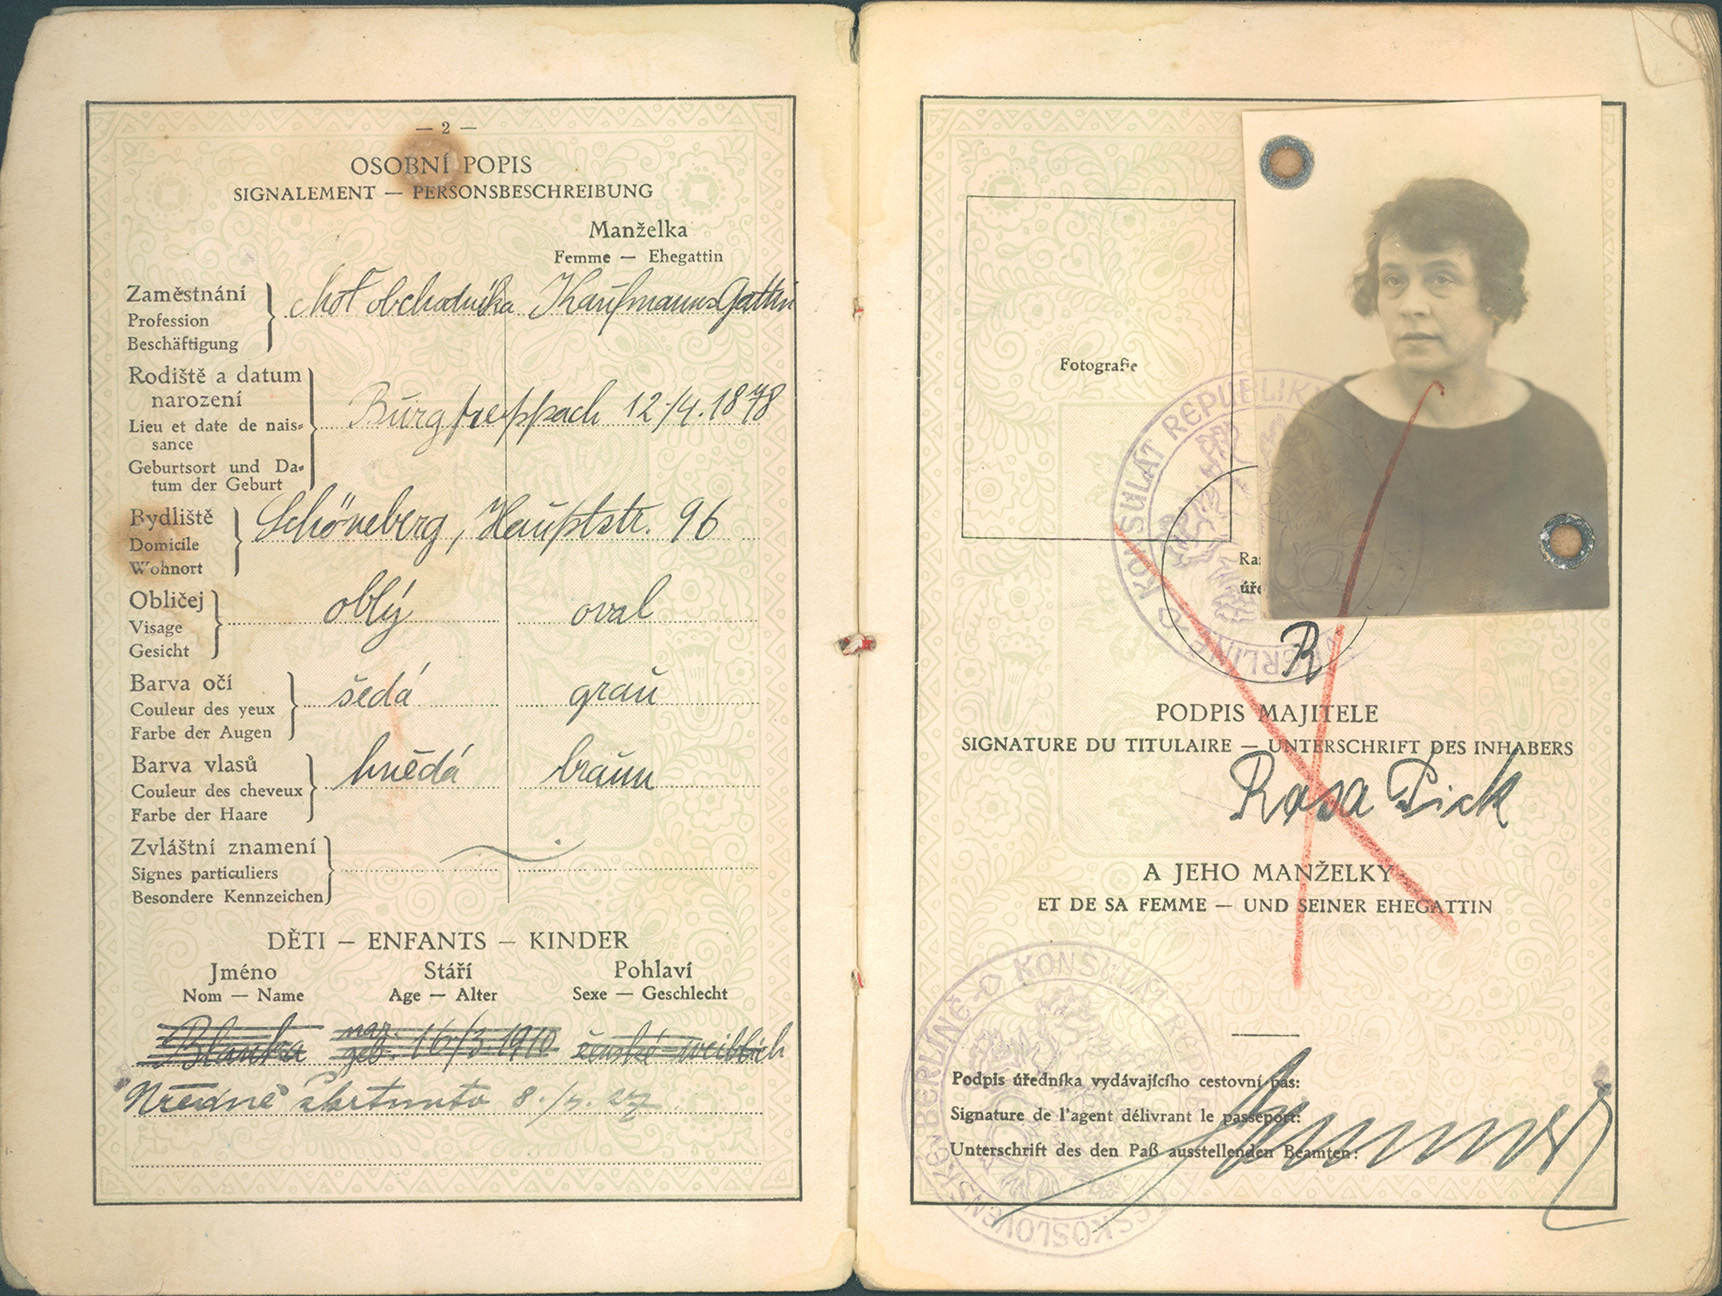 — 2 —
OSOBNÍ POPIS
SIGNALEMENT — PERSONSBESCHREIBUNG
Manželka
Femme — Ehegattin
Zaměstnání
Profession
Beschäftigung
choť obchodníka Kaufmanns Gattin
Rodiště a datum
narození
Lieu et date de nais-
sance
Geburtsort und Da-
tum der Geburt
Burgpreppach 12./4. 1878
Bydliště
Domicile
Wohnort
Schöneberg, Hauptstr. 96
Obličej
Visage
Gesicht
oblý oval
Barva očí
Couleur des yeux
Farbe der Augen
šedá grau
Barva vlasů
Couleur des cheveux
Farbe der Haare
hnědá braun
Zvláštní znamení
Signes particuliers
Besondere Kennzeichen
DĚTI — ENFANTS — KINDER
Jméno Stáří Pohlaví
Nom — Name Age — Alter Sexe — Geschlecht
Blanka nar. geb. 16/3 1910 ženské weiblich
Úředně škrtnuto 8./7. 27
Fotografie
KONSULÁT REPUBLIKY
BERLÍNĚ
R
PODPIS MAJITELE
SIGNATURE DU TITULAIRE — UNTERSCHRIFT DES INHABERS
Rosa Pick
A JEHO MANŽELKY
ET DE SA FEMME — UND SEINER EHEGATTIN
KONSULÁT
ČESKOSLOVENSKÉ
BERLÍNĚ
Podpis úředníka vydávajícího cestovní pas:
Signature de l'agent délivrant le passeport:
Unterschrift des den Paß ausstellenden Beamten: